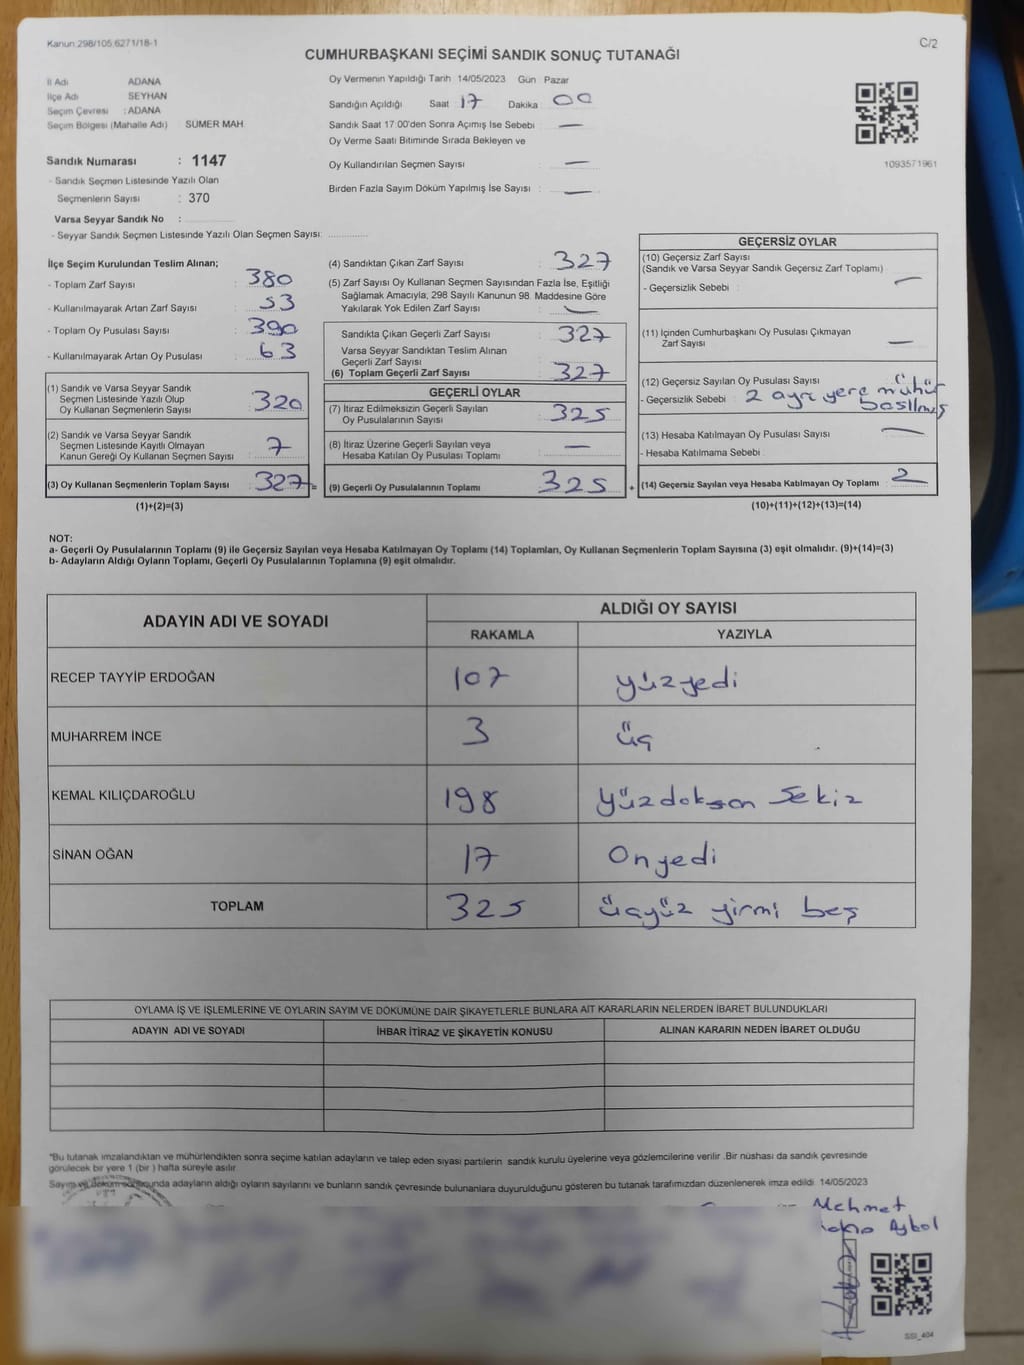 Kanun 298/105,6271/18-1
C/2
CUMHURBAŞKANI SEÇİMİ SANDIK SONUÇ TUTANAĞI
İl Adı ADANA
İlçe Adı SEYHAN
Seçim Çevresi : ADANA
Seçim Bölgesi (Mahalle Adı) SÜMER MAH
Sandık Numarası : 1147
- Sandık Seçmen Listesinde Yazılı Olan
Seçmenlerin Sayısı : 370
Varsa Seyyar Sandık No :
- Seyyar Sandık Seçmen Listesinde Yazılı Olan Seçmen Sayısı:
Oy Vermenin Yapıldığı Tarih 14/05/2023 Gün Pazar
Sandığın Açıldığı Saat 17 Dakika 00
Sandık Saat 17:00'den Sonra Açımış İse Sebebi : —
Oy Verme Saati Bitiminde Sırada Bekleyen ve
Oy Kullandırılan Seçmen Sayısı : —
Birden Fazla Sayım Döküm Yapılmış İse Sayısı : —
1093571961
İlçe Seçim Kurulundan Teslim Alınan;
- Toplam Zarf Sayısı : 380
- Kullanılmayarak Artan Zarf Sayısı : 53
- Toplam Oy Pusulası Sayısı : 390
- Kullanılmayarak Artan Oy Pusulası : 63
(1) Sandık ve Varsa Seyyar Sandık
Seçmen Listesinde Yazılı Olup
Oy Kullanan Seçmenlerin Sayısı : 320
(2) Sandık ve Varsa Seyyar Sandık
Seçmen Listesinde Kayıtlı Olmayan
Kanun Gereği Oy Kullanan Seçmen Sayısı : 7
(3) Oy Kullanan Seçmenlerin Toplam Sayısı : 327 =
(1)+(2)=(3)
(4) Sandıktan Çıkan Zarf Sayısı : 327
(5) Zarf Sayısı Oy Kullanan Seçmen Sayısından Fazla İse, Eşitliği
Sağlamak Amacıyla, 298 Sayılı Kanunun 98. Maddesine Göre
Yakılarak Yok Edilen Zarf Sayısı : —
Sandıkta Çıkan Geçerli Zarf Sayısı : 327
Varsa Seyyar Sandıktan Teslim Alınan
Geçerli Zarf Sayısı
(6) Toplam Geçerli Zarf Sayısı : 327
GEÇERLİ OYLAR
(7) İtiraz Edilmeksizin Geçerli Sayılan
Oy Pusulalarının Sayısı : 325
(8) İtiraz Üzerine Geçerli Sayılan veya
Hesaba Katılan Oy Pusulası Toplamı : —
(9) Geçerli Oy Pusulalarının Toplamı : 325 +
GEÇERSİZ OYLAR
(10) Geçersiz Zarf Sayısı
(Sandık ve Varsa Seyyar Sandık Geçersiz Zarf Toplamı) : —
- Geçersizlik Sebebi :
(11) İçinden Cumhurbaşkanı Oy Pusulası Çıkmayan
Zarf Sayısı : —
(12) Geçersiz Sayılan Oy Pusulası Sayısı :
- Geçersizlik Sebebi : 2 ayrı yere mühür
basılmış
(13) Hesaba Katılmayan Oy Pusulası Sayısı : —
- Hesaba Katılmama Sebebi :
(14) Geçersiz Sayılan veya Hesaba Katılmayan Oy Toplamı : 2
(10)+(11)+(12)+(13)=(14)
NOT:
a- Geçerli Oy Pusulalarının Toplamı (9) ile Geçersiz Sayılan veya Hesaba Katılmayan Oy Toplamı (14) Toplamları, Oy Kullanan Seçmenlerin Toplam Sayısına (3) eşit olmalıdır. (9)+(14)=(3)
b- Adayların Aldığı Oyların Toplamı, Geçerli Oy Pusulalarının Toplamına (9) eşit olmalıdır.
ADAYIN ADI VE SOYADI ALDIĞI OY SAYISI
RAKAMLA YAZIYLA
RECEP TAYYİP ERDOĞAN 107 yüzyedi
MUHARREM İNCE 3 üç
KEMAL KILIÇDAROĞLU 198 yüzdoksan sekiz
SİNAN OĞAN 17 Onyedi
TOPLAM 325 üçyüz yirmi beş
OYLAMA İŞ VE İŞLEMLERİNE VE OYLARIN SAYIM VE DÖKÜMÜNE DAİR ŞİKAYETLERLE BUNLARA AİT KARARLARIN NELERDEN İBARET BULUNDUKLARI
ADAYIN ADI VE SOYADI İHBAR İTİRAZ VE ŞİKAYETİN KONUSU ALINAN KARARIN NEDEN İBARET OLDUĞU
"Bu tutanak imzalandıktan ve mühürlendikten sonra seçime katılan adayların ve talep eden siyasi partilerin sandık kurulu üyelerine veya gözlemcilerine verilir .Bir nüshası da sandık çevresinde
görülecek bir yere 1 (bir ) hafta süreyle asılır
Sayım ve döküm sonucunda adayların aldığı oyların sayılarını ve bunların sandık çevresinde bulunanlara duyurulduğunu gösteren bu tutanak tarafımızdan düzenlenerek imza edildi 14/05/2023
Mehmet
Aybol
SSI_404